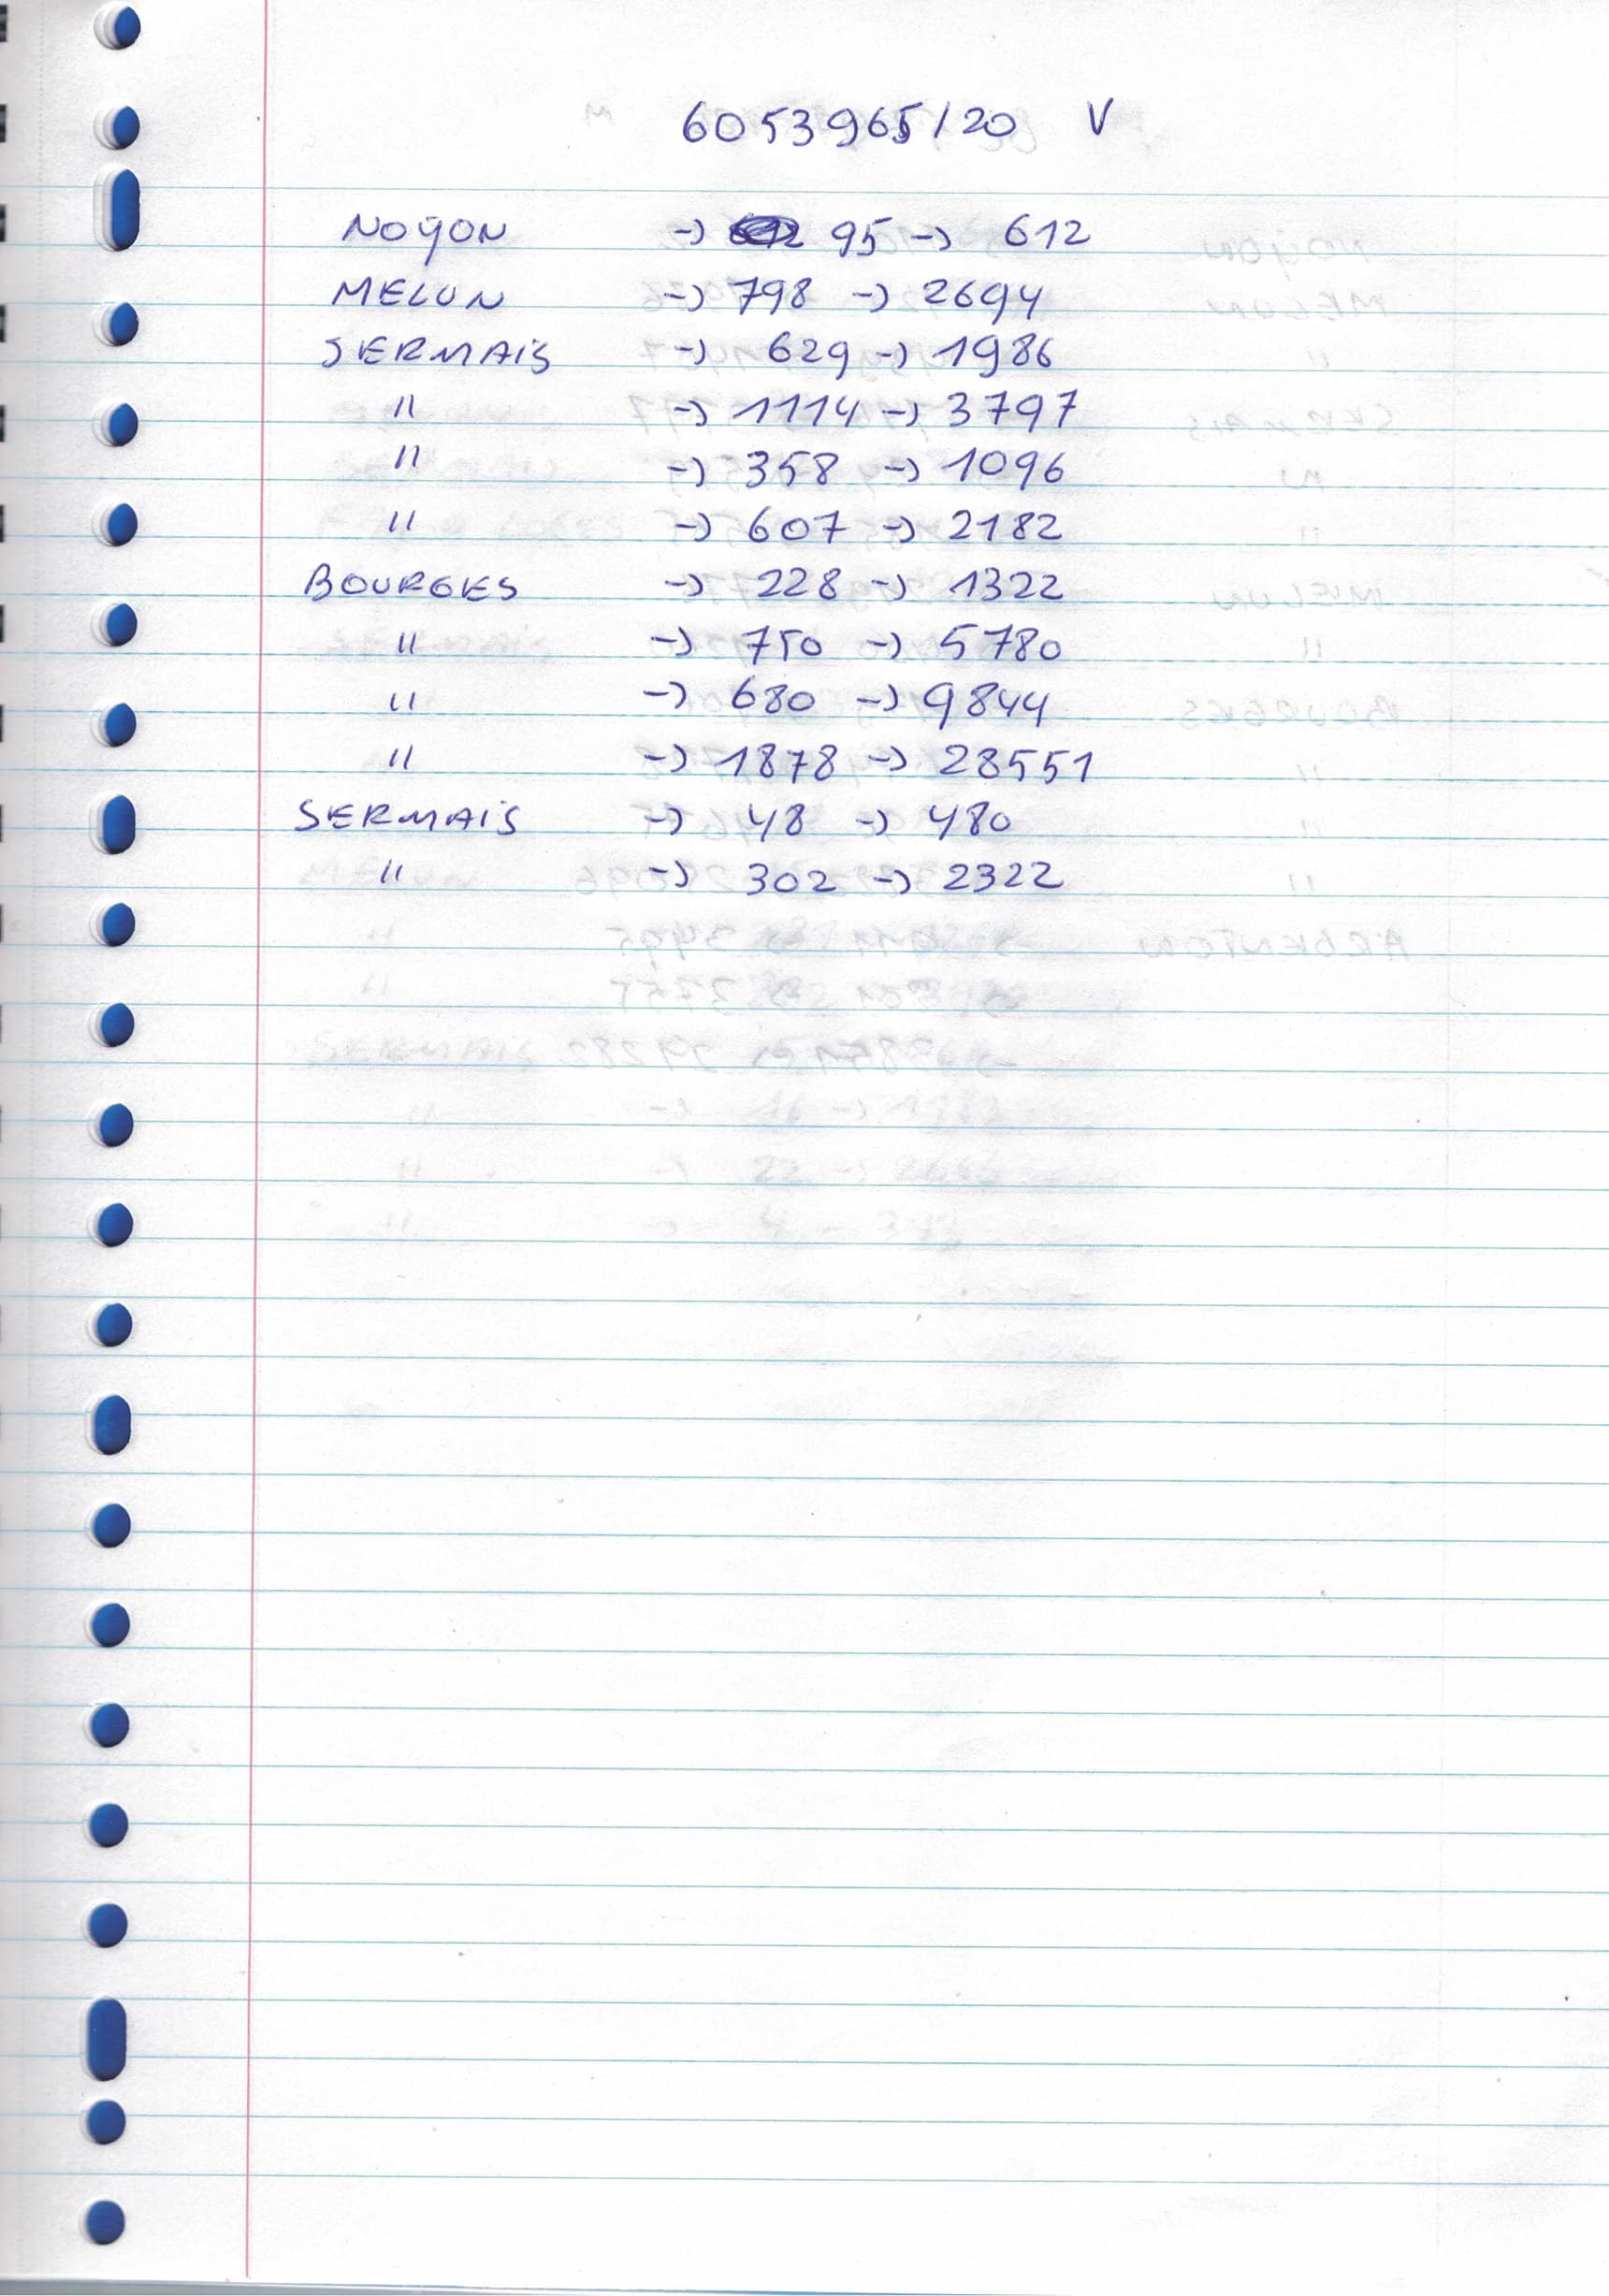 6053965/20 V
NOYON -> 95 -> 612
MELUN -> 798 -> 2694
SERMAIS -> 629 -> 1986
" -> 1114 -> 3797
" -> 358 -> 1096
" -> 607 -> 2182
BOURGES -> 228 -> 1322
" -> 750 -> 5780
" -> 680 -> 9844
" -> 1878 -> 28551
SERMAIS -> 48 -> 480
" -> 302 -> 2322